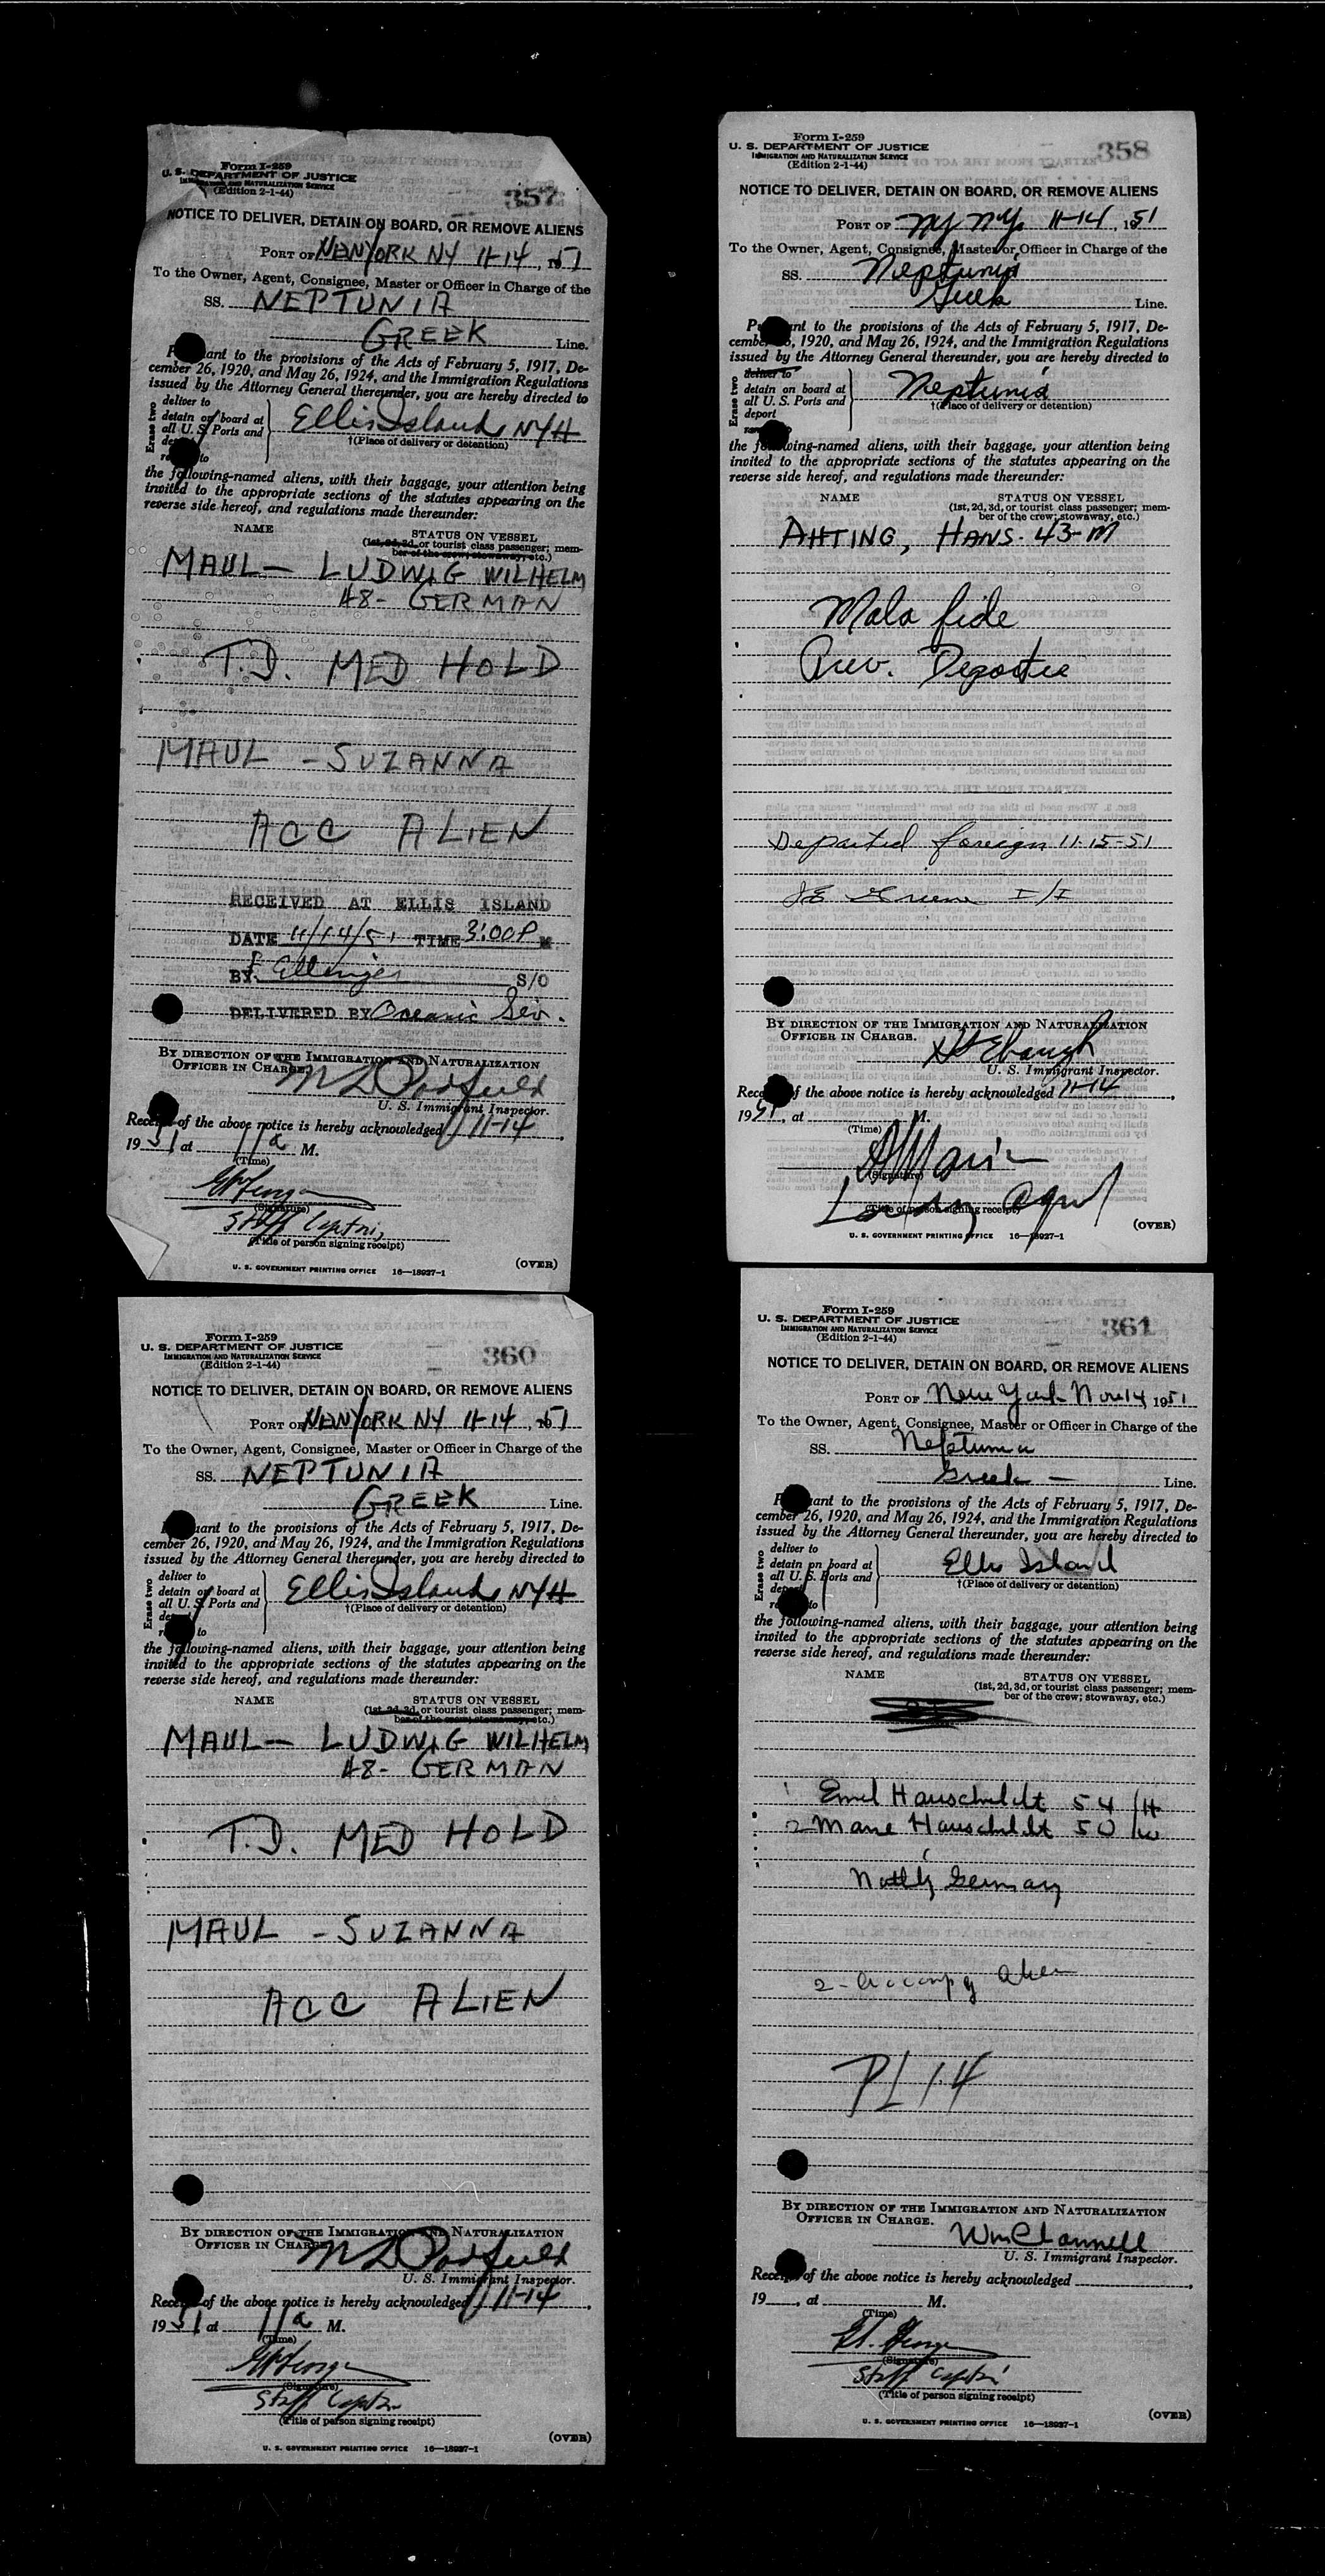 Form I-259
U. S. DEPARTMENT OF JUSTICE
IMMIGRATION AND NATURALIZATION SERVICE
(Edition 2-1-44)
357
NOTICE TO DELIVER, DETAIN ON BOARD, OR REMOVE ALIENS
PORT OF NEW YORK NY 11-14, 1951
To the Owner, Agent, Consignee, Master or Officer in Charge of the
SS. NEPTUNIA
GREEK Line.
ant to the provisions of the Acts of February 5, 1917, De-
cember 26, 1920, and May 26, 1924, and the Immigration Regulations
issued by the Attorney General thereunder, you are hereby directed to
Erase two
deliver to
detain on board at
all U. S. Ports and
to
Ellis Island NYH
†(Place of delivery or detention)
the following-named aliens, with their baggage, your attention being
invited to the appropriate sections of the statutes appearing on the
reverse side hereof, and regulations made thereunder:
NAME STATUS ON VESSEL
(1st, 2d, 3d, or tourist class passenger; mem-
ber of the crew; stowaway, etc.)
MAUL — LUDWIG WILHELM
48 - GERMAN
T.D. MED HOLD
MAUL - SUZANNA
ACC ALIEN
RECEIVED AT ELLIS ISLAND
DATE 11/14/51 TIME 3:00P M
BY S/O
DELIVERED BY Oceanic Sev.
BY DIRECTION OF THE IMMIGRATION AND NATURALIZATION
OFFICER IN CHARGE.
U. S. Immigrant Inspector.
of the above notice is hereby acknowledged 11-14,
1951 at 11a M.
(Time)
(Signature)
Staff Captn,
(Title of person signing receipt)
(OVER)
U. S. GOVERNMENT PRINTING OFFICE 16—18927-1
Form I-259
U. S. DEPARTMENT OF JUSTICE
IMMIGRATION AND NATURALIZATION SERVICE
(Edition 2-1-44)
358
NOTICE TO DELIVER, DETAIN ON BOARD, OR REMOVE ALIENS
PORT OF NY NY 11-14, 1951
To the Owner, Agent, Consignee, Master or Officer in Charge of the
SS. Neptunia
Greek Line.
nt to the provisions of the Acts of February 5, 1917, De-
1920, and May 26, 1924, and the Immigration Regulations
issued by the Attorney General thereunder, you are hereby directed to
Erase two
deliver to
detain on board at
all U. S. Ports and
deport
Neptunia
†(Place of delivery or detention)
the following-named aliens, with their baggage, your attention being
invited to the appropriate sections of the statutes appearing on the
reverse side hereof, and regulations made thereunder:
NAME STATUS ON VESSEL
(1st, 2d, 3d, or tourist class passenger; mem-
ber of the crew; stowaway, etc.)
AHTING, HANS. 43-M
Mala fide
Prev. Deportee
Departed foreign 11-15-51
BY DIRECTION OF THE IMMIGRATION AND NATURALIZATION
OFFICER IN CHARGE.
U. S. Immigrant Inspector.
of the above notice is hereby acknowledged 11-14,
1951, at M.
(Time)
(Signature)
(Title of person signing receipt)
(OVER)
U. S. GOVERNMENT PRINTING OFFICE 16—18927-1
Form I-259
U. S. DEPARTMENT OF JUSTICE
IMMIGRATION AND NATURALIZATION SERVICE
(Edition 2-1-44)
360
NOTICE TO DELIVER, DETAIN ON BOARD, OR REMOVE ALIENS
PORT OF NEW YORK NY 11-14, 1951
To the Owner, Agent, Consignee, Master or Officer in Charge of the
SS. NEPTUNIA
GREEK Line.
uant to the provisions of the Acts of February 5, 1917, De-
cember 26, 1920, and May 26, 1924, and the Immigration Regulations
issued by the Attorney General thereunder, you are hereby directed to
Erase two
deliver to
detain on board at
all U. S. Ports and
to
Ellis Island NYH
†(Place of delivery or detention)
the following-named aliens, with their baggage, your attention being
invited to the appropriate sections of the statutes appearing on the
reverse side hereof, and regulations made thereunder:
NAME STATUS ON VESSEL
(1st, 2d, 3d, or tourist class passenger; mem-
ber of the crew; stowaway, etc.)
MAUL — LUDWIG WILHELM
48 - GERMAN
T.D. MED HOLD
MAUL - SUZANNA
ACC ALIEN
BY DIRECTION OF THE IMMIGRATION AND NATURALIZATION
OFFICER IN CHARGE
U. S. Immigrant Inspector.
of the above notice is hereby acknowledged 11-14,
1951 at 11a M.
(Time)
(Signature)
Staff Captn.
(Title of person signing receipt)
(OVER)
U. S. GOVERNMENT PRINTING OFFICE 16—18927-1
Form I-259
U. S. DEPARTMENT OF JUSTICE
IMMIGRATION AND NATURALIZATION SERVICE
(Edition 2-1-44)
361
NOTICE TO DELIVER, DETAIN ON BOARD, OR REMOVE ALIENS
PORT OF New York Nov 14 1951
To the Owner, Agent, Consignee, Master or Officer in Charge of the
SS. Neptunia
Greek — Line.
ant to the provisions of the Acts of February 5, 1917, De-
cember 26, 1920, and May 26, 1924, and the Immigration Regulations
issued by the Attorney General thereunder, you are hereby directed to
Erase two
deliver to
detain on board at
all U. S. Ports and
to
Ellis Island
†(Place of delivery or detention)
the following-named aliens, with their baggage, your attention being
invited to the appropriate sections of the statutes appearing on the
reverse side hereof, and regulations made thereunder:
NAME STATUS ON VESSEL
(1st, 2d, 3d, or tourist class passenger; mem-
ber of the crew; stowaway, etc.)
1 Emil Hauschildt 54 H
2 Marie Hauschildt 50 W
Natly Germany
2 - Accompy Alien
PL 14
BY DIRECTION OF THE IMMIGRATION AND NATURALIZATION
OFFICER IN CHARGE.
Wm Channell
U. S. Immigrant Inspector.
of the above notice is hereby acknowledged ,
19 , at M.
(Time)
(Signature)
Staff Captn
(Title of person signing receipt)
(OVER)
U. S. GOVERNMENT PRINTING OFFICE 16—18927-1